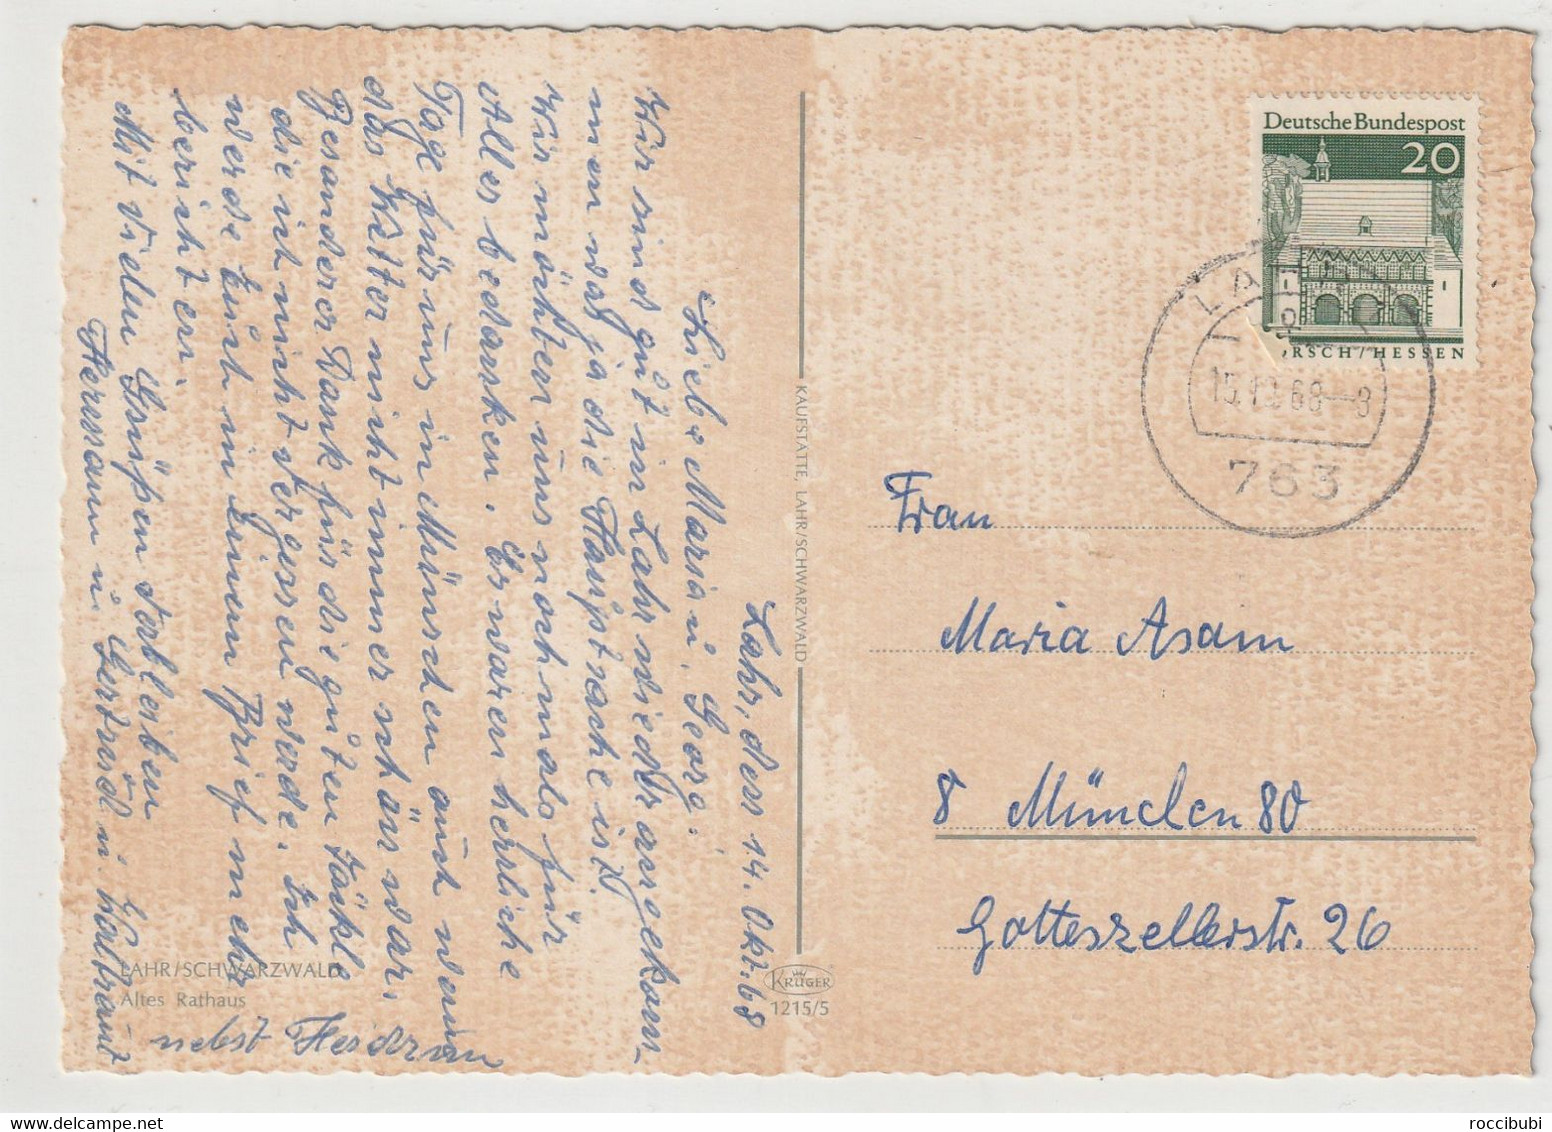 Lahr, den 14. Okt. 68
Liebe Maria u. Georg!
Wir sind gut in Lahr wieder angekom-
men was ja die Hauptsache ist.
Wir möchten uns nochmals für
Alles bedanken. Es waren herrliche
Tage für uns in München auch wenn
das Wetter nicht immer schön war.
Besonderer Dank für die guten
die ich nicht vergessen werde. Ich
werde Euch in einem Brief mehr
berichten.
Mit vielen Grüßen verbleiben
Hermann u. Gertrud u. Waltraud
nebst Heidrun
LAHR/SCHWARZWALD
Altes Rathaus
KAUFSTÄTTE, LAHR/SCHWARZWALD
KRÜGER
1215/5
Deutsche Bundespost
20
RSCH/HESSEN
LAHR
15.10.68--8
763
Frau
Maria Asam
8 München 80
Gotteszellerstr. 26
roccibubi